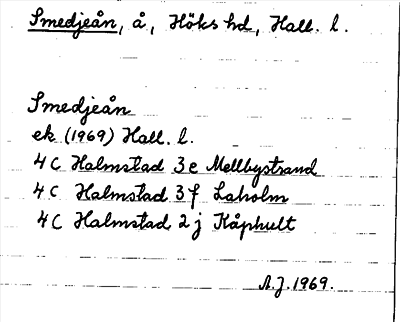 Smedjeån, å, Höks hd, Hall. l.
Smedjeån
ek (1969) Hall. l.
4 C Halmstad 3 e Mellbystrand
4 C Halmstad 3 f Laholm
4 C Halmstad 2 j Kåphult
A.J. 1969.